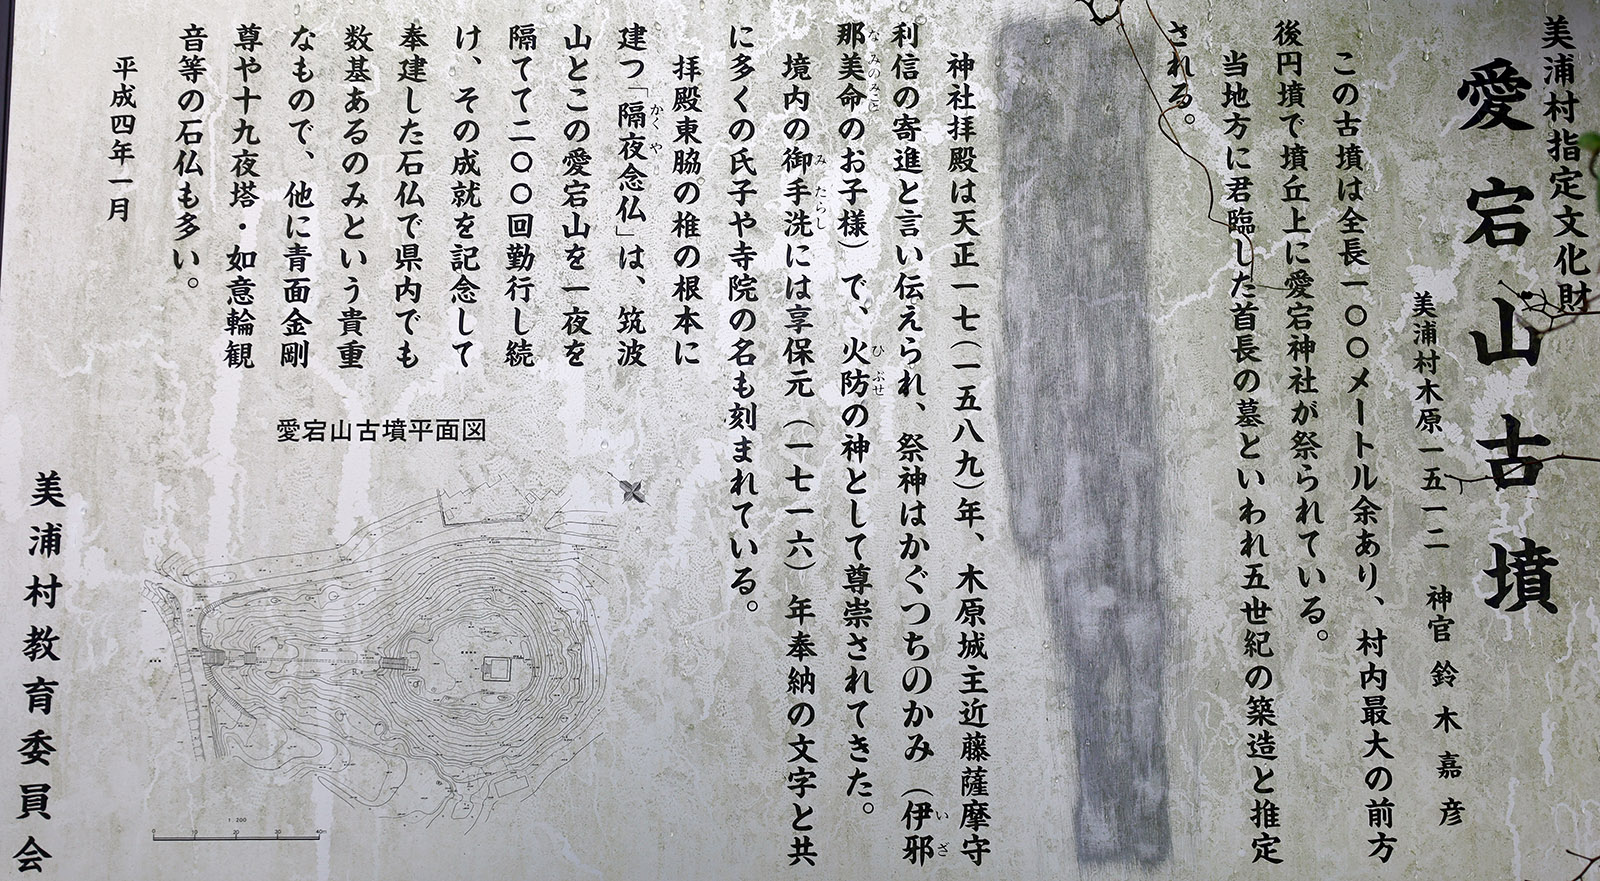 美浦村指定文化財
愛宕山古墳
美浦村木原一五一二 神官 鈴木嘉彦
この古墳は全長一〇〇メートル余あり、村内最大の前方
後円墳で墳丘上に愛宕神社が祭られている。
当地方に君臨した首長の墓といわれ五世紀の築造と推定
される。
神社拝殿は天正一七(一五八九)年、木原城主近藤薩摩守
利信の寄進と言い伝えられ、祭神はかぐつちのかみ(伊邪
いざ
那美命のお子様)で、火防の神として尊崇されてきた。
なみのみこと ひぶせ
境内の御手洗には享保元(一七一六)年奉納の文字と共
みたらし
に多くの氏子や寺院の名も刻まれている。
拝殿東脇の椎の根本に
建つ「隔夜念仏」は、筑波
かくや
山とこの愛宕山を一夜を
隔てて二〇〇回勤行し続
け、その成就を記念して
奉建した石仏で県内でも
数基あるのみという貴重
なもので、他に青面金剛
尊や十九夜塔・如意輪観
音等の石仏も多い。
平成四年一月
愛宕山古墳平面図
1:200
0 10 20 30 40m
美浦村教育委員会